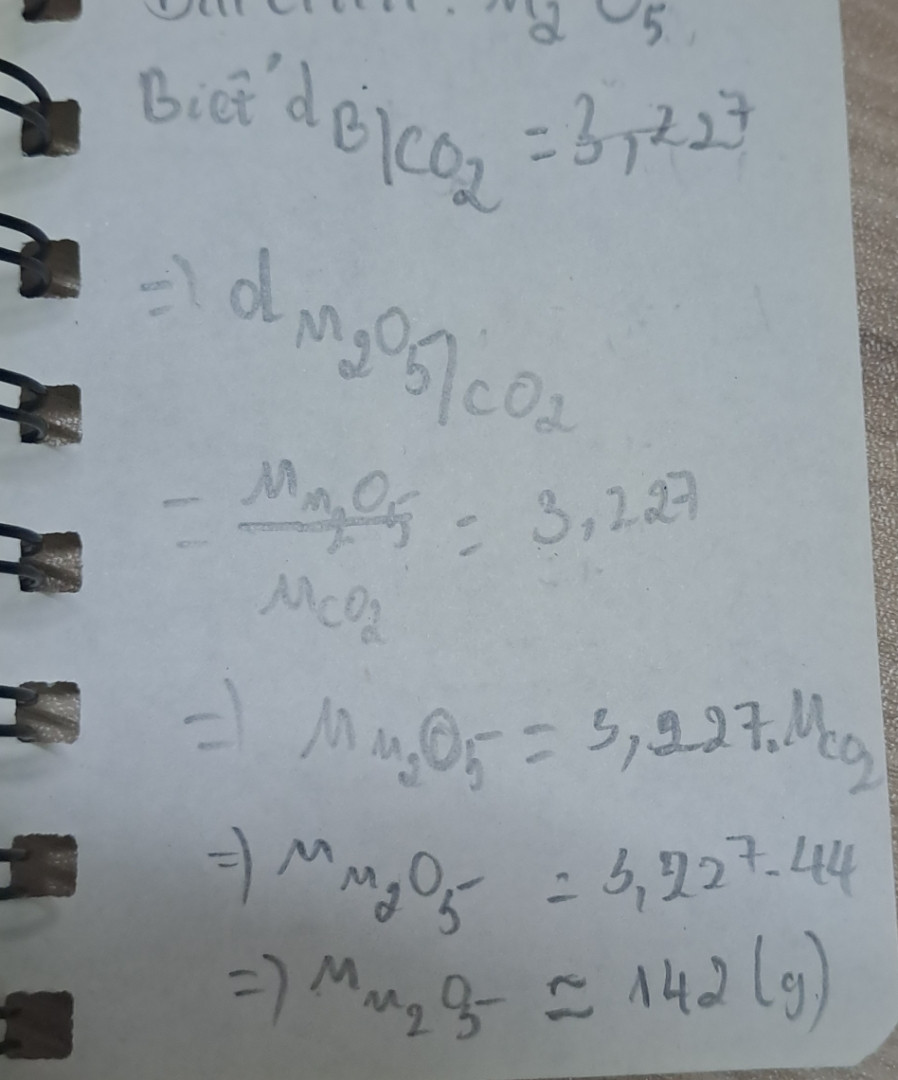 M2O5.
Biết d B/CO2 = 3,227
=> d M2O5/CO2
= M M2O5 / M CO2 = 3,227
=> M M2O5 = 3,227. M CO2
=> M M2O5 = 3,227.44
=> M M2O5 ≈ 142 (g)